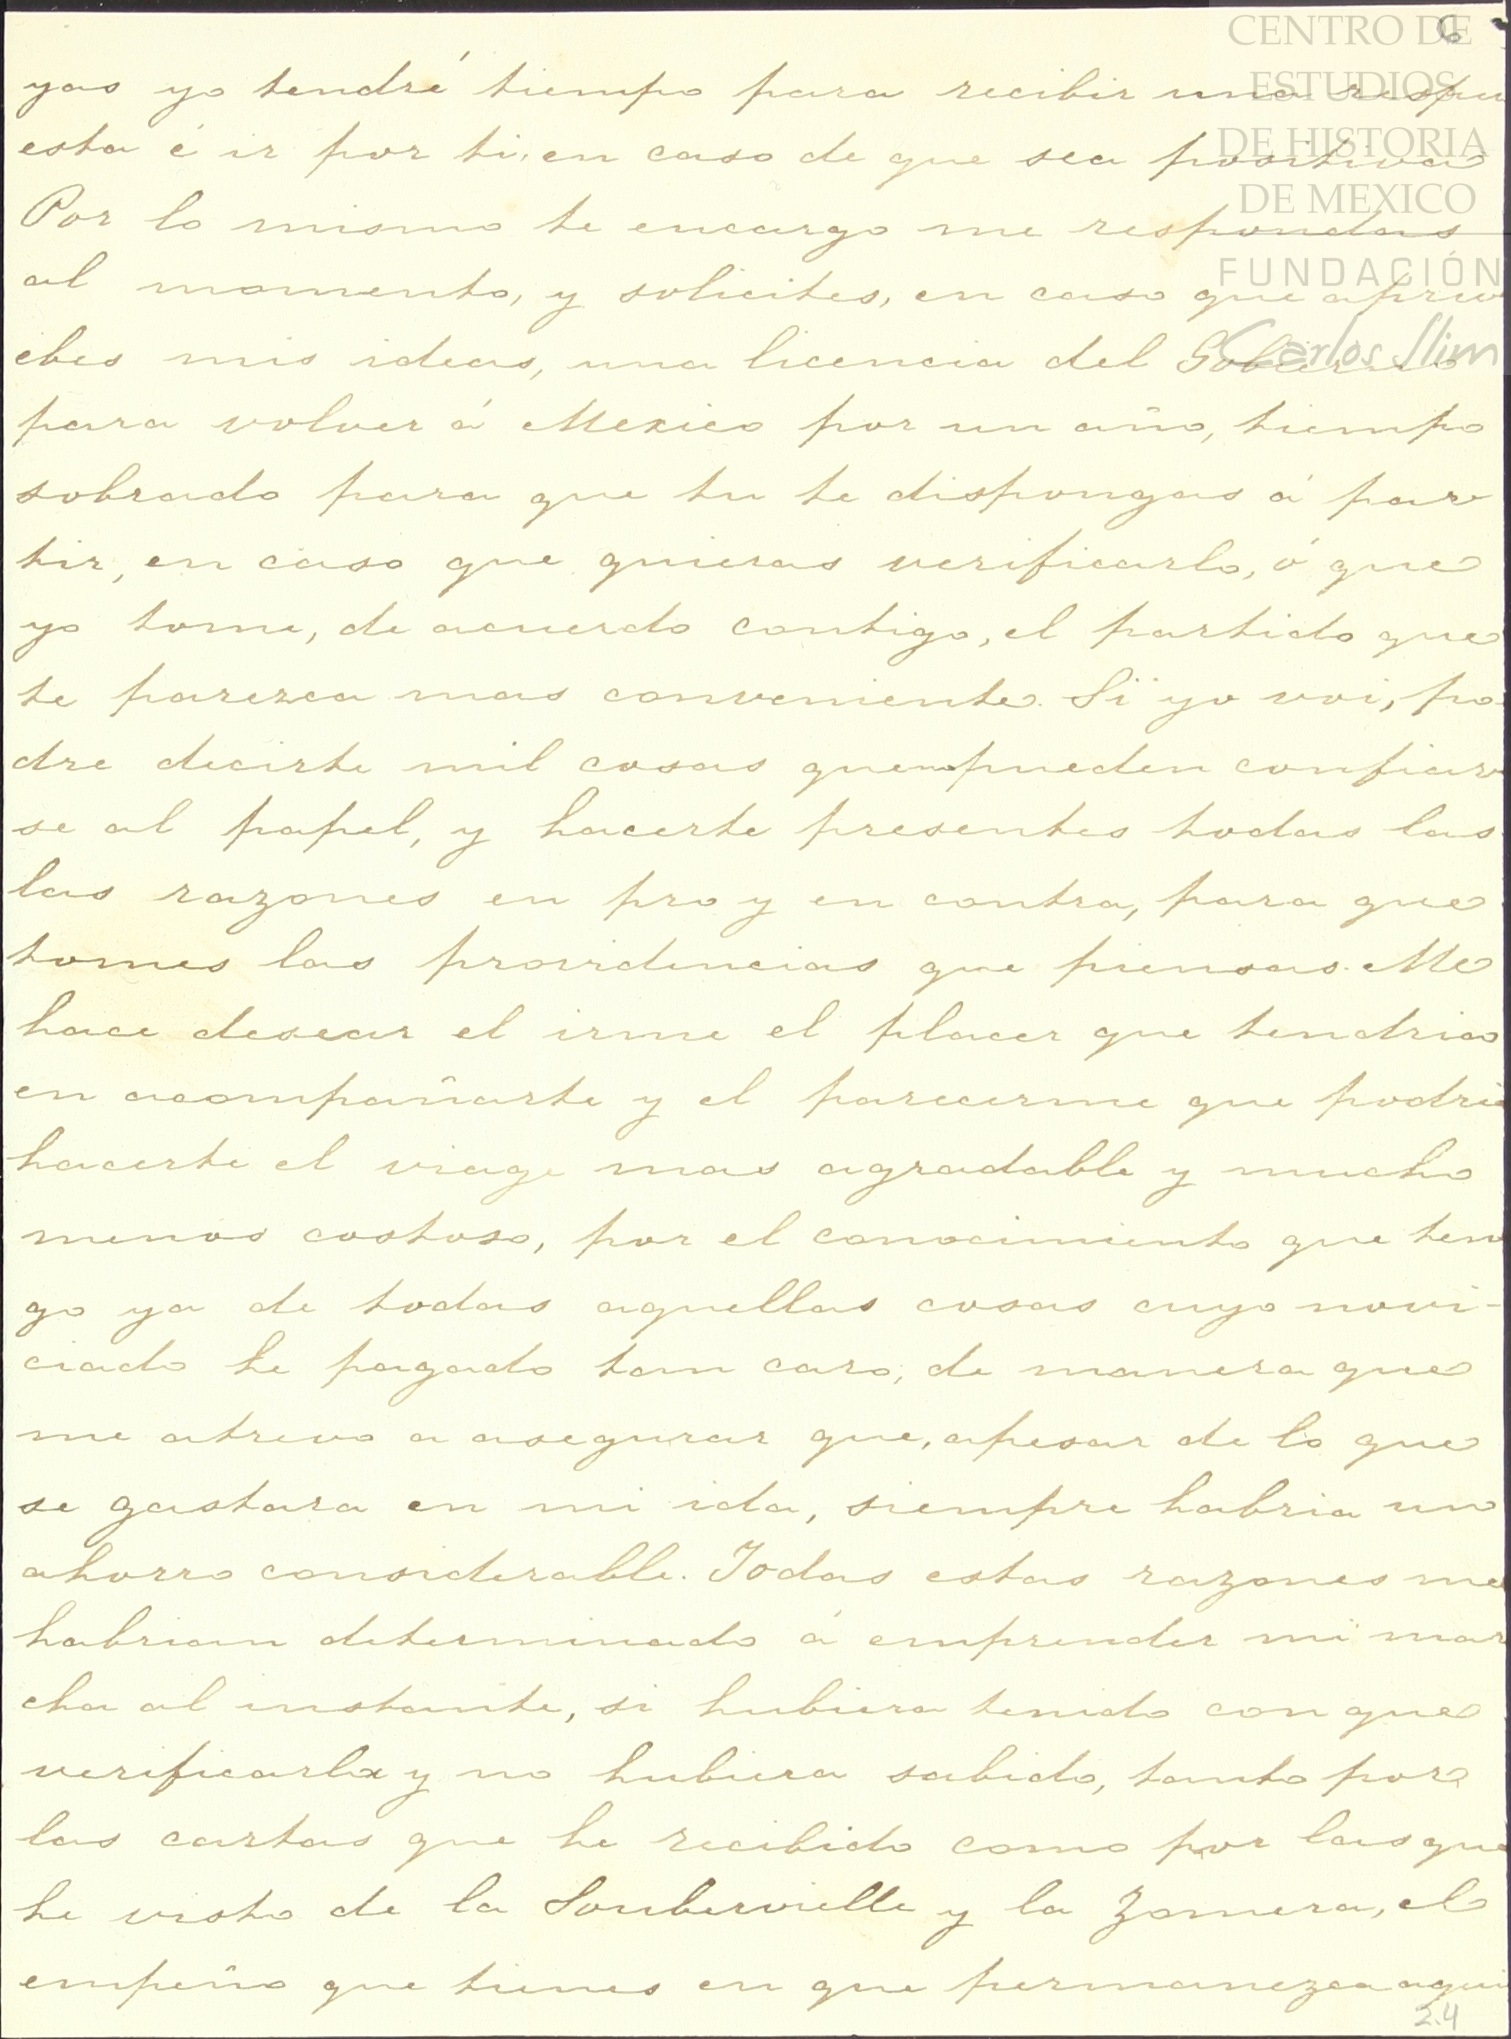 CENTRO DE
ESTUDIOS
DE HISTORIA
DE MEXICO
FUNDACIÓN
Carlos Slim
6
yas yo tendré tiempo para recibir una respu
esta é ir por ti, en caso de que sea positiva
Por lo mismo te encargo me respondas
al momento, y solicites, en caso que apru
ebes mis ideas, una licencia del Gobierno
para volver á Mexico por un año, tiempo
sobrado para que tu te dispongas á par
tir, en caso que quieras verificarlo, ó que
yo tome, de acuerdo contigo, el partido que
te parezca mas conveniente. Si yo voi, po
dre decirte mil cosas que pueden confiar
se al papel, y hacerte presentes todas las
las razones en pro y en contra, para que
tomes las providencias que piensas. Me
hace desear el irme el placer que tendria
en acompañarte y el parecerme que podria
hacerte el viage mas agradable y mucho
menos costoso, por el conocimiento que ten
go ya de todas aquellas cosas cuyo novi-
ciado he pagado tan caro, de manera que
me atrevo a asegurar que, apesar de lo que
se gastara en mi ida, siempre habria un
ahorro considerable. Todas estas razones me
habrian determinado á emprender mi mar
cha al instante, si hubiera tenido con que
verificarla y no hubiera sabido, tanto por
las cartas que he recibido como por las que
he visto de la Soubervielle y la Zomera, el
empeño que tienes en que permanezca aqui
2.4